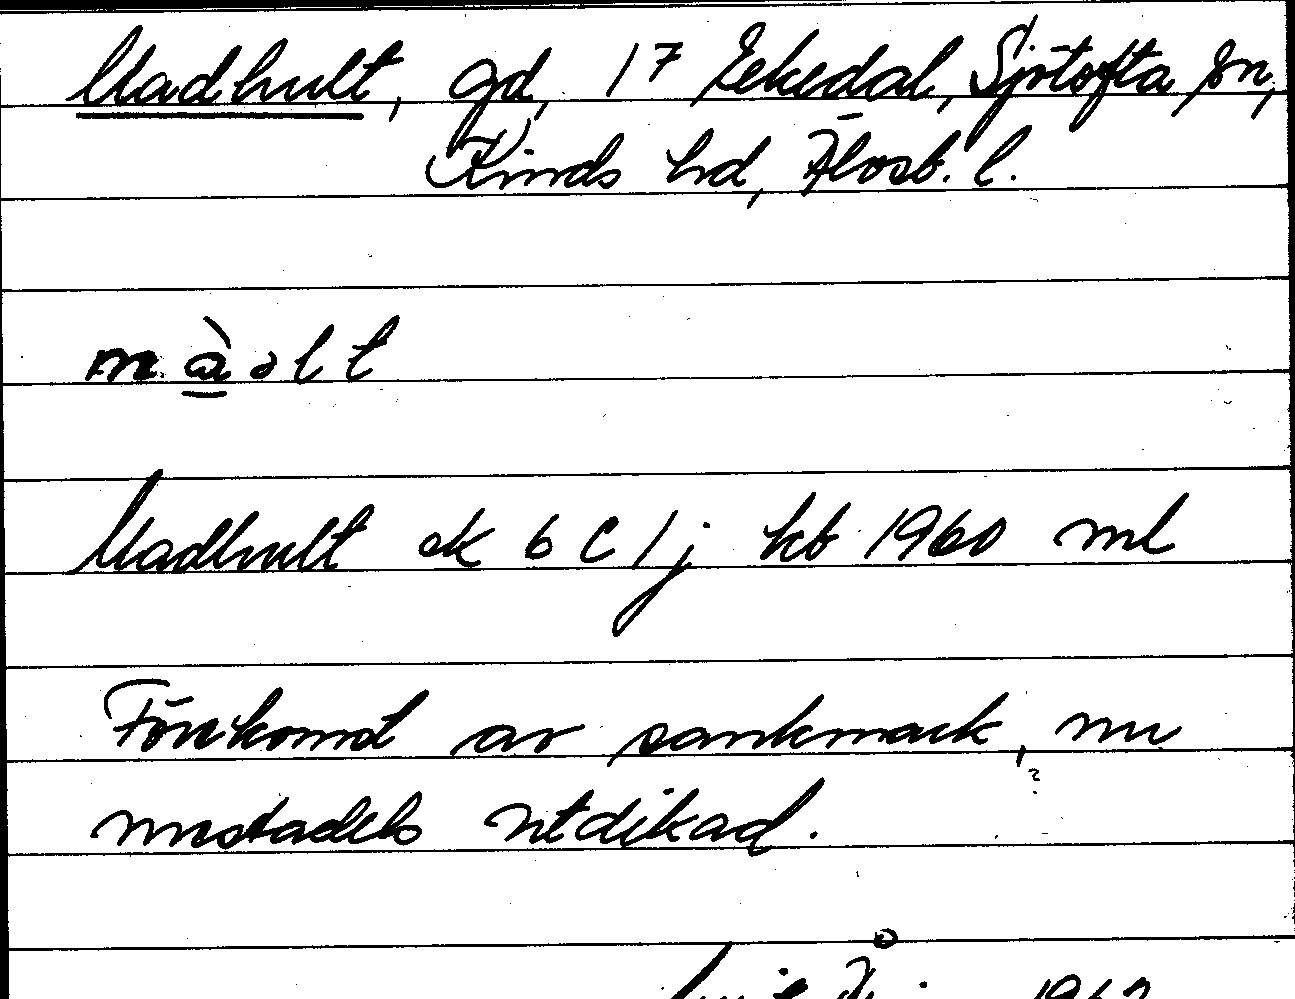 Madhult, gd, 17 Ekedal, Sjötofta sn,
Kinds hd, Älvsb. l.
m à ə l t
Madhult ek 6 C 1 j kb 1960 ml
Förekomst av sankmark, nu
mestadels utdikad.